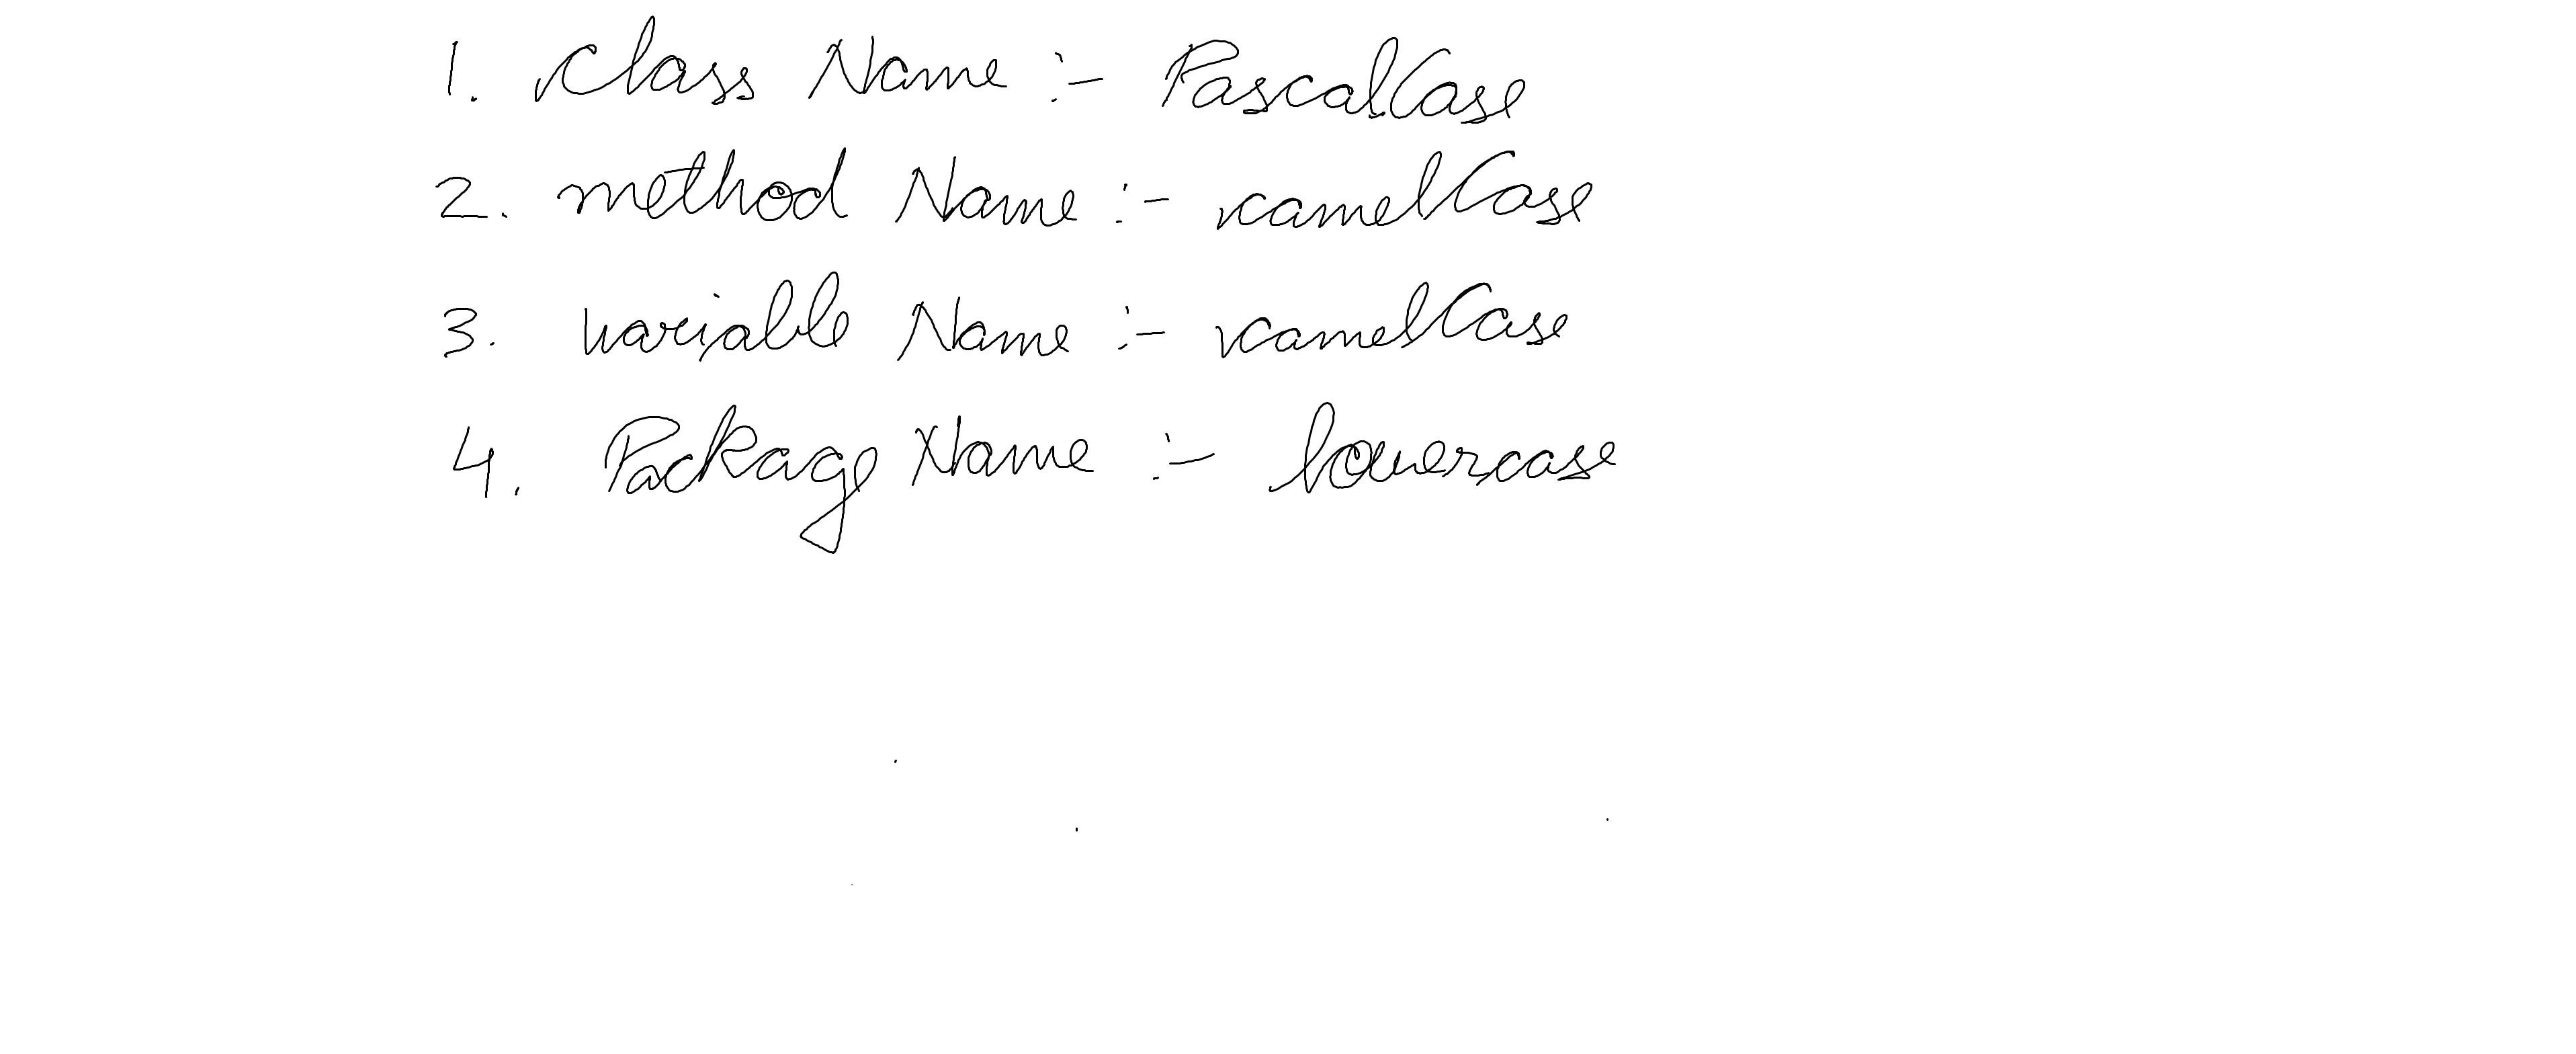 1. Class Name :- PascalCase
2. method Name :- camelCase
3. variable Name :- camelCase
4. Package Name :- lowercase